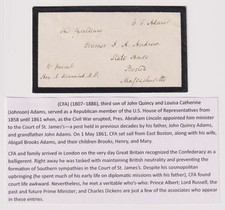 C. F. Adams
His Excellency
Governor J. A. Andrew
State House
Boston
Massachusetts
(CFA) (1807-1886), third son of John Quincy and Louisa Catherine
(Johnson) Adams, served as a Republican member of the U.S. House of Representatives from
1858 until 1861 when, as the Civil War erupted, Pres. Abraham Lincoln appointed him minister
to the Court of St. James's—a post held in previous decades by his father, John Quincy Adams,
and grandfather, John Adams. On 1 May 1861, CFA set sail from East Boston, along with his wife,
Abigail Brooks Adams, and their children Brooks, Henry, and Mary.
CFA and family arrived in London on the very day Great Britain recognized the Confederacy as a
belligerent. Right away he was tasked with maintaining British neutrality and preventing the
formation of Southern sympathies in the Court of St. James's. Despite his cosmopolitan
upbringing (he spent much of his early life on diplomatic missions with his father), CFA found
court life awkward. Nevertheless, he met a veritable who's-who: Prince Albert; Lord Russell, the
past and future Prime Minister; and Charles Dickens are just a few of the associates who appear
in these entries.